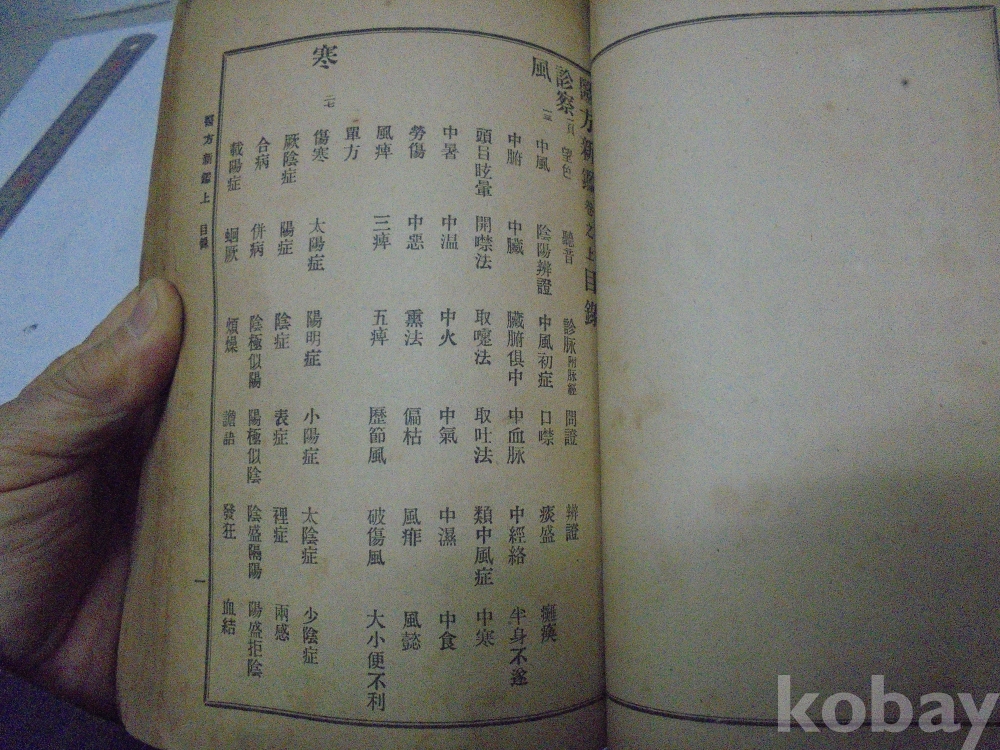 醫方新鑑卷之上目錄
診察 一頁 望色 聽音 診脉 附脉經 問證 辨證
風 一三 中風 陰陽辨證 中風初症 口噤 痰盛 癱瘓
中腑 中臟 臟腑俱中 中血脉 中經絡 半身不遂
頭目眩暈 開噤法 取嚏法 取吐法 類中風症 中寒
中暑 中温 中火 中氣 中濕 中食
勞傷 中惡 熏法 偏枯 風痱 風懿
風痺 三痺 五痺 歷節風 破傷風 大小便不利
單方
寒 二七 傷寒 太陽症 陽明症 小陽症 太陰症 少陰症
厥陰症 陽症 陰症 表症 裡症 兩感
合病 併病 陰極似陽 陽極似陰 陰盛隔陽 陽盛拒陰
戴陽症 蛔厥 煩燥 譫語 發狂 血結
醫方新鑑上 目錄 一
kobay